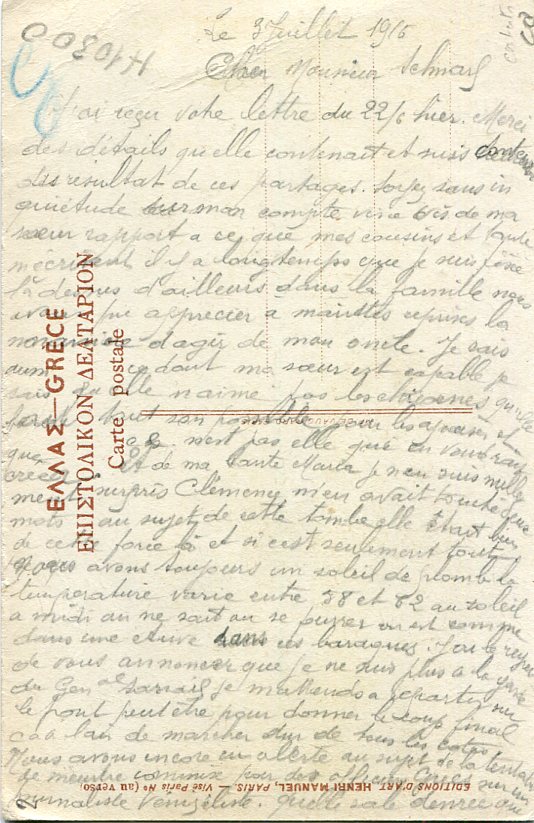 Le 3 Juillet 1916
Cher Monsieur
J'ai reçu votre lettre du 22/6 hier. Merci
des détails qu'elle contenait et suis
du résultat de ces partages. Soyez sans in
quiétude sur mon compte vis à vis de ma
sœur rapport a ce que mes cousins et tante
m'écrivent il y a longtemps que je suis fixé
là dessus d'ailleurs dans la famille nous
avons pu apprécier a maintes reprises la
d'agir de mon oncle. Je sais
aussi ce dont ma sœur est capable je
sais qu'elle n'aime pas les
son possible pour les et
que ce n'est pas elle que
de ma tante Maria je n'en suis nulle
ment surpris Clémence m'en avait touché
mots au sujet de cette tombe elle était
de cette force là et si c'est seulement tout
Nous avons toujours un soleil de plomb la
température varie entre 58 et 62 au soleil
a midi on ne sait ou se on est comme
dans une étuve dans ces baraques. J'ai le regret
de vous annoncer que je ne suis plus a la garde
du Gen al Sarrail je m'attends a partir sur
le front peut être pour donner le coup final
ca a l'air de marcher dur de tous les cotés
Nous avons encore eu alerte au sujet de la tentative
de meurtre commise par des officiers Grecs sur un
journaliste Vénizéliste. quelle sale denrée
ΕΛΛΑΣ—GRÈCE
ΕΠΙΣΤΟΛΙΚΟΝ ΔΕΛΤΑΡΙΟΝ
Carte postale
ÉDITIONS D'ART HENRI MANUEL, PARIS. — Visé Paris N° (au verso)